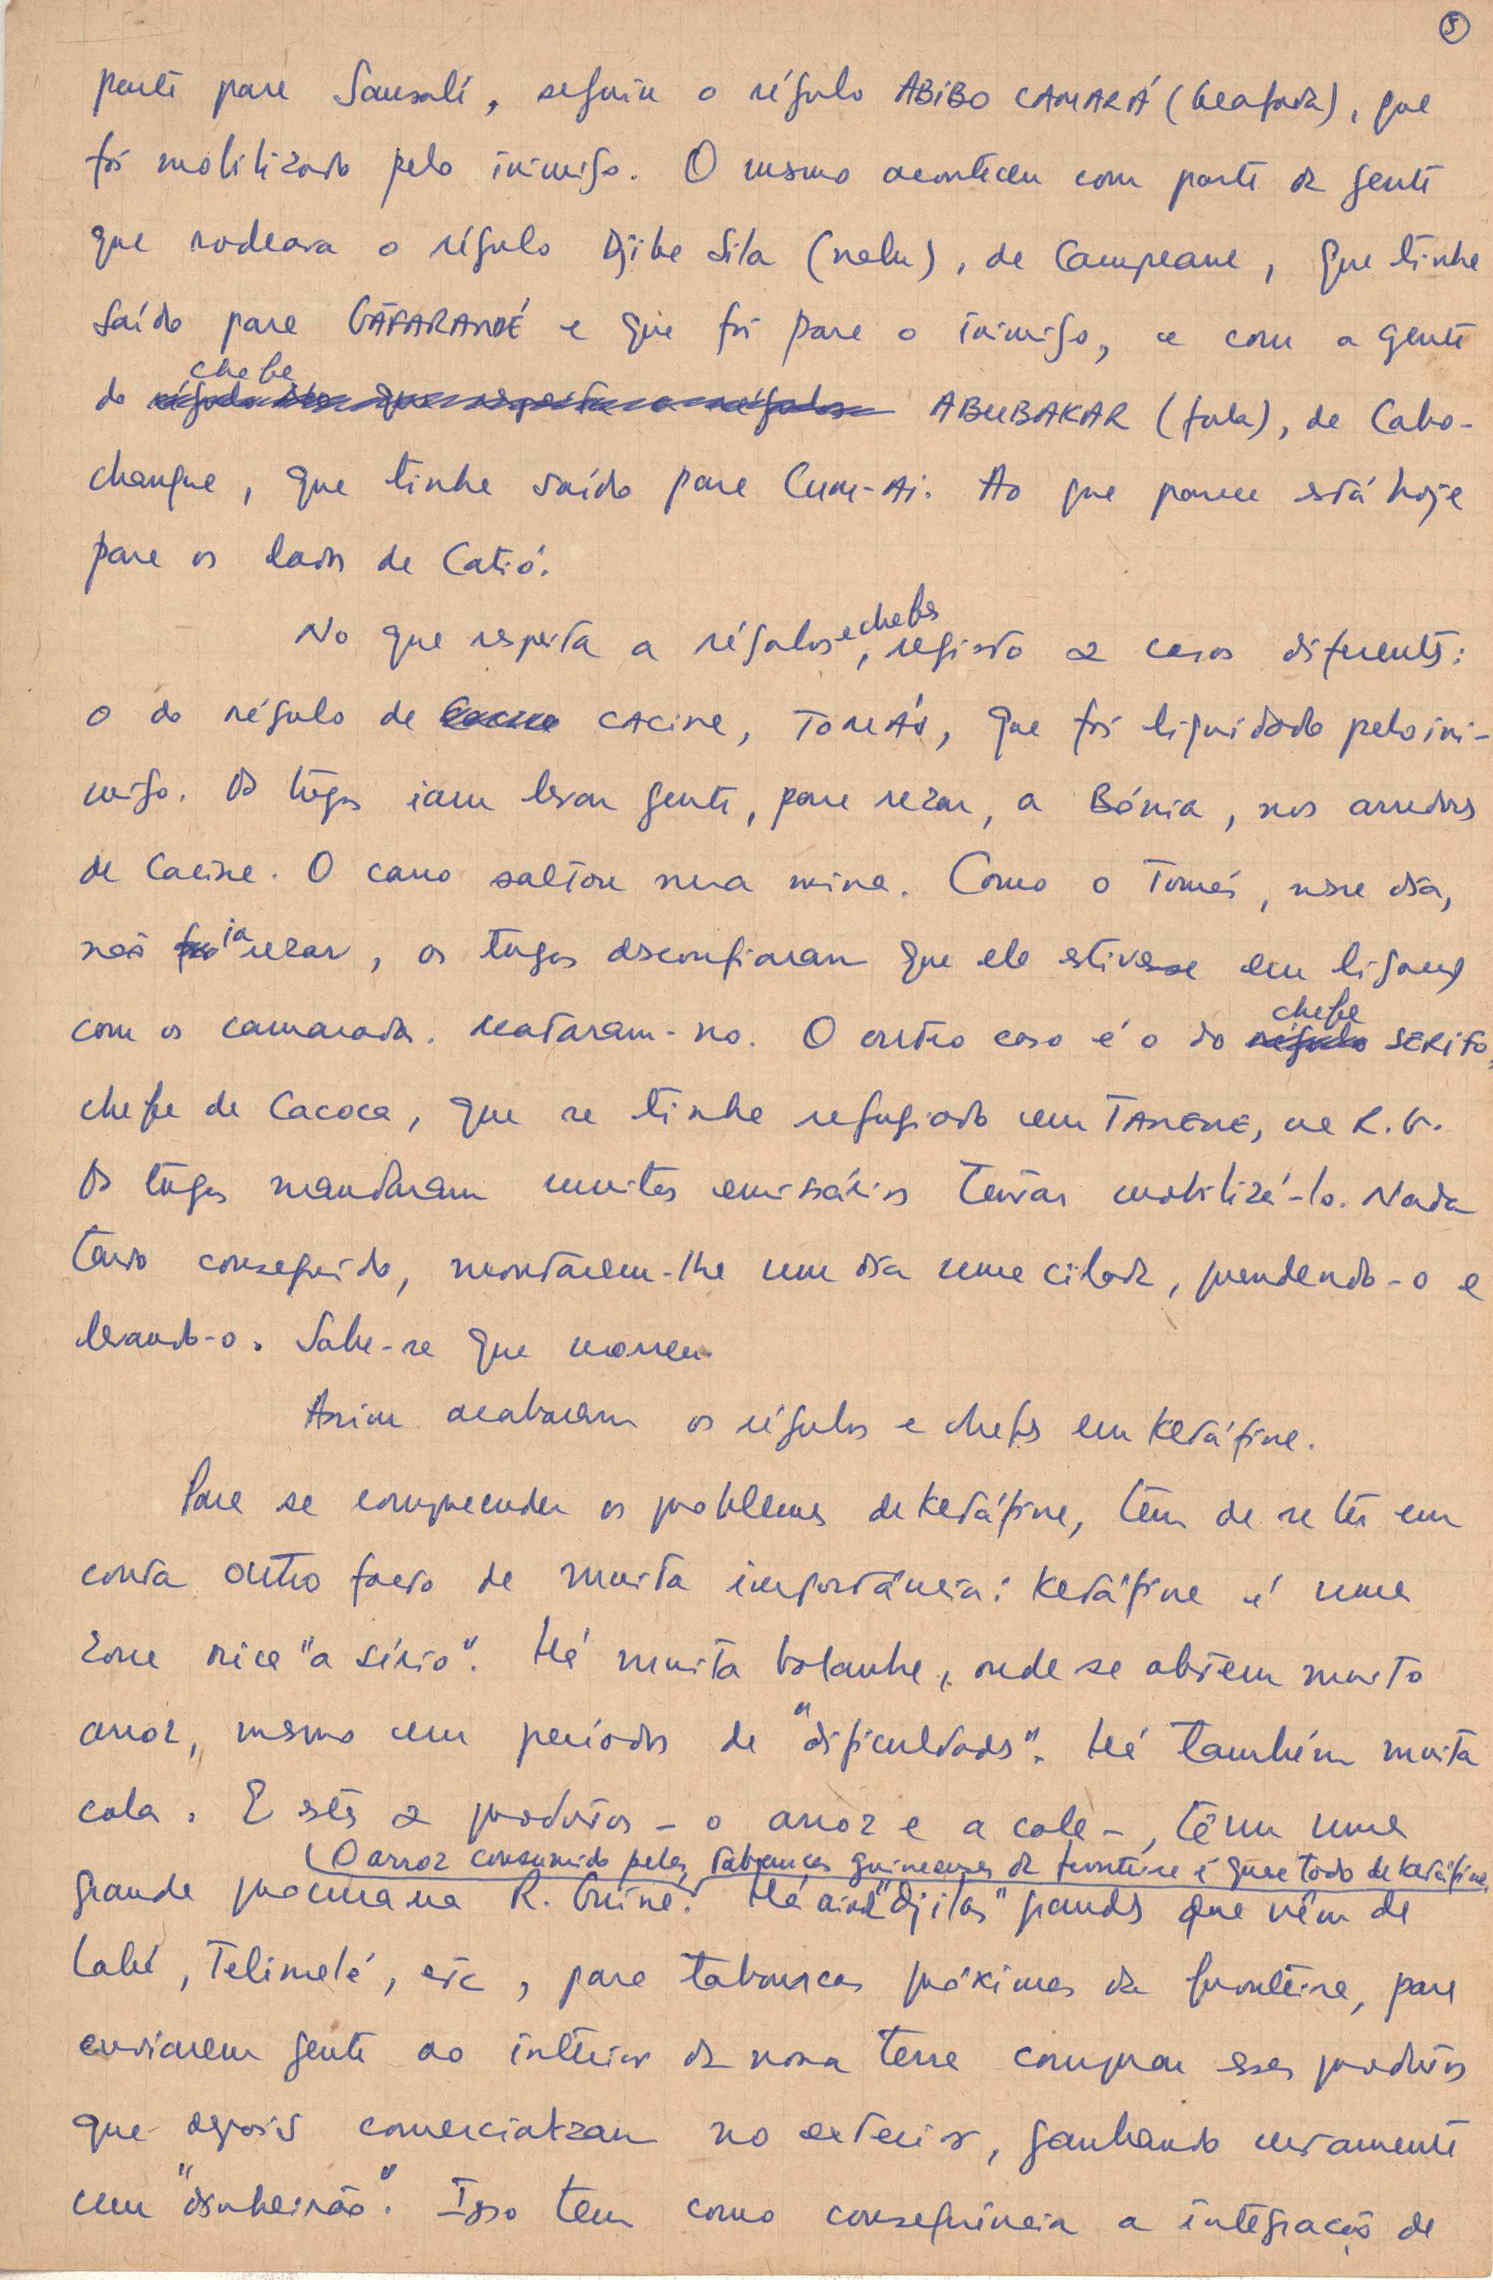 5
parte para Sansalé, seguiu o régulo ABIBO CAMARÁ (beafada), que
foi mobilizado pelo inimigo. O mesmo aconteceu com parte da gente
que rodeava o régulo Djibe Sila (nalu), de Campeane, que tinha
saído para GÃFARANDÉ e que foi para o inimigo, e com a gente
do chefe ABUBAKAR (fula), de Cabo-
changue, que tinha saído para Cum-Ai. Ao que parece está hoje
para os lados de Catió.
No que respeita a régulos e chefes, registo 2 casos diferentes:
o do régulo de CACINE, TOMÁS, que foi liquidado pelo ini-
migo. Os tugas iam levar gente, para rezar, a Bónia, nos arredores
de Cacine. O carro saltou numa mina. Como o Tomás, nesse dia,
não ia rezar, os tugas desconfiaram que ele estivesse em ligação
com os camaradas. Mataram-no. O outro caso é o do chefe SERIFO,
chefe de Cacoca, que se tinha refugiado em TANENE, na R. G.
Os tugas mandaram muitos emissários tentar mobilizá-lo. Nada
tendo conseguido, montaram-lhe um dia uma cilada, prendendo-o e
levando-o. Sabe-se que morreu.
Assim acabaram os régulos e chefes em Ketáfine.
Para se compreender os problemas de Ketáfine, têm de se ter em
conta outro facto de muita importância: Ketáfine é uma
zona rica "a sério". Há muita bolanha, onde se obtem muito
arroz, mesmo em períodos de "dificuldades". Há também muita
cola. Estes 2 produtos - o arroz e a cola -, têm uma
(O arroz consumido pelas tabancas guineenses da fronteira é quase todo de Ketáfine)
grande procura na R. Guiné. Há ainda "djilas" grandes que vêm de
Labé, Telimelé, etc, para tabancas próximas da fronteira, para
enviarem gente ao interior da nossa terra comprar esses produtos
que depois comercializam no exterior, ganhando certamente
um "dinheirão". Isso tem como consequência a integração de